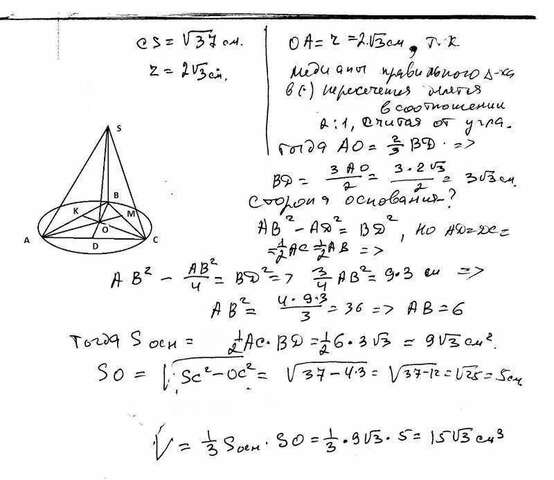 CS = √37 см.
r = 2√3 см.
OA = r = 2√3 см, т.к
медианы правильного Δ-ка
в (·) пересечения делятся
в соотношении
2:1, считая от угла.
Тогда AO = 2/3 BD. =>
BD = 3AO/2 = 3·2√3/2 = 3√3 см.
Сторона основания?
AB² - AD² = BD², но AD = DC =
= 1/2 AC = 1/2 AB =>
AB² - AB²/4 = BD² => 3/4 AB² = 9·3 см =>
AB² = 4·9·3/3 = 36 => AB = 6
Тогда Sосн = 1/2 AC·BD = 1/2 6·3√3 = 9√3 см².
SO = √SC²-OC² = √37-4·3 = √37-12 = √25 = 5см
V = 1/3 Sосн · SO = 1/3 · 9√3 · 5 = 15√3 см³
S
B
K
M
O
A
D
C